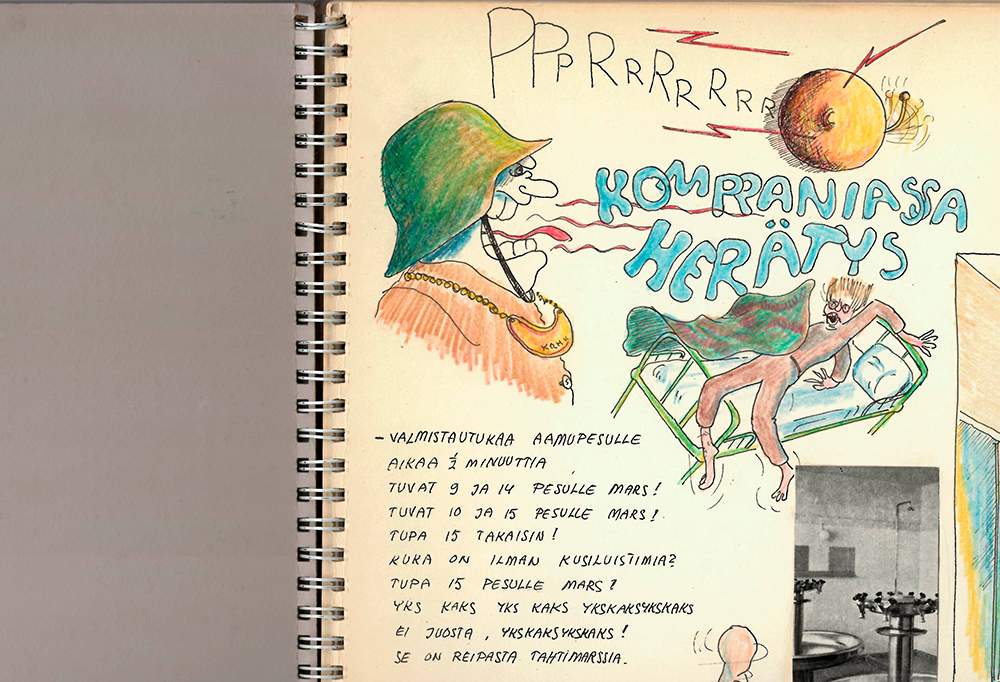 PPPRRRRRRRR
KOMPPANIASSA
HERÄTYS
KRHK
– VALMISTAUTUKAA AAMUPESULLE
AIKAA ½ MINUUTTIA
TUVAT 9 JA 14 PESULLE MARS!
TUVAT 10 JA 15 PESULLE MARS!
TUPA 15 TAKAISIN!
KUKA ON ILMAN KUSILUISTIMIA?
TUPA 15 PESULLE MARS?
YKS KAKS YKS KAKS YKSKAKSYKSKAKS
EI JUOSTA, YKSKAKSYKSKAKS!
SE ON REIPASTA TAHTIMARSSIA.